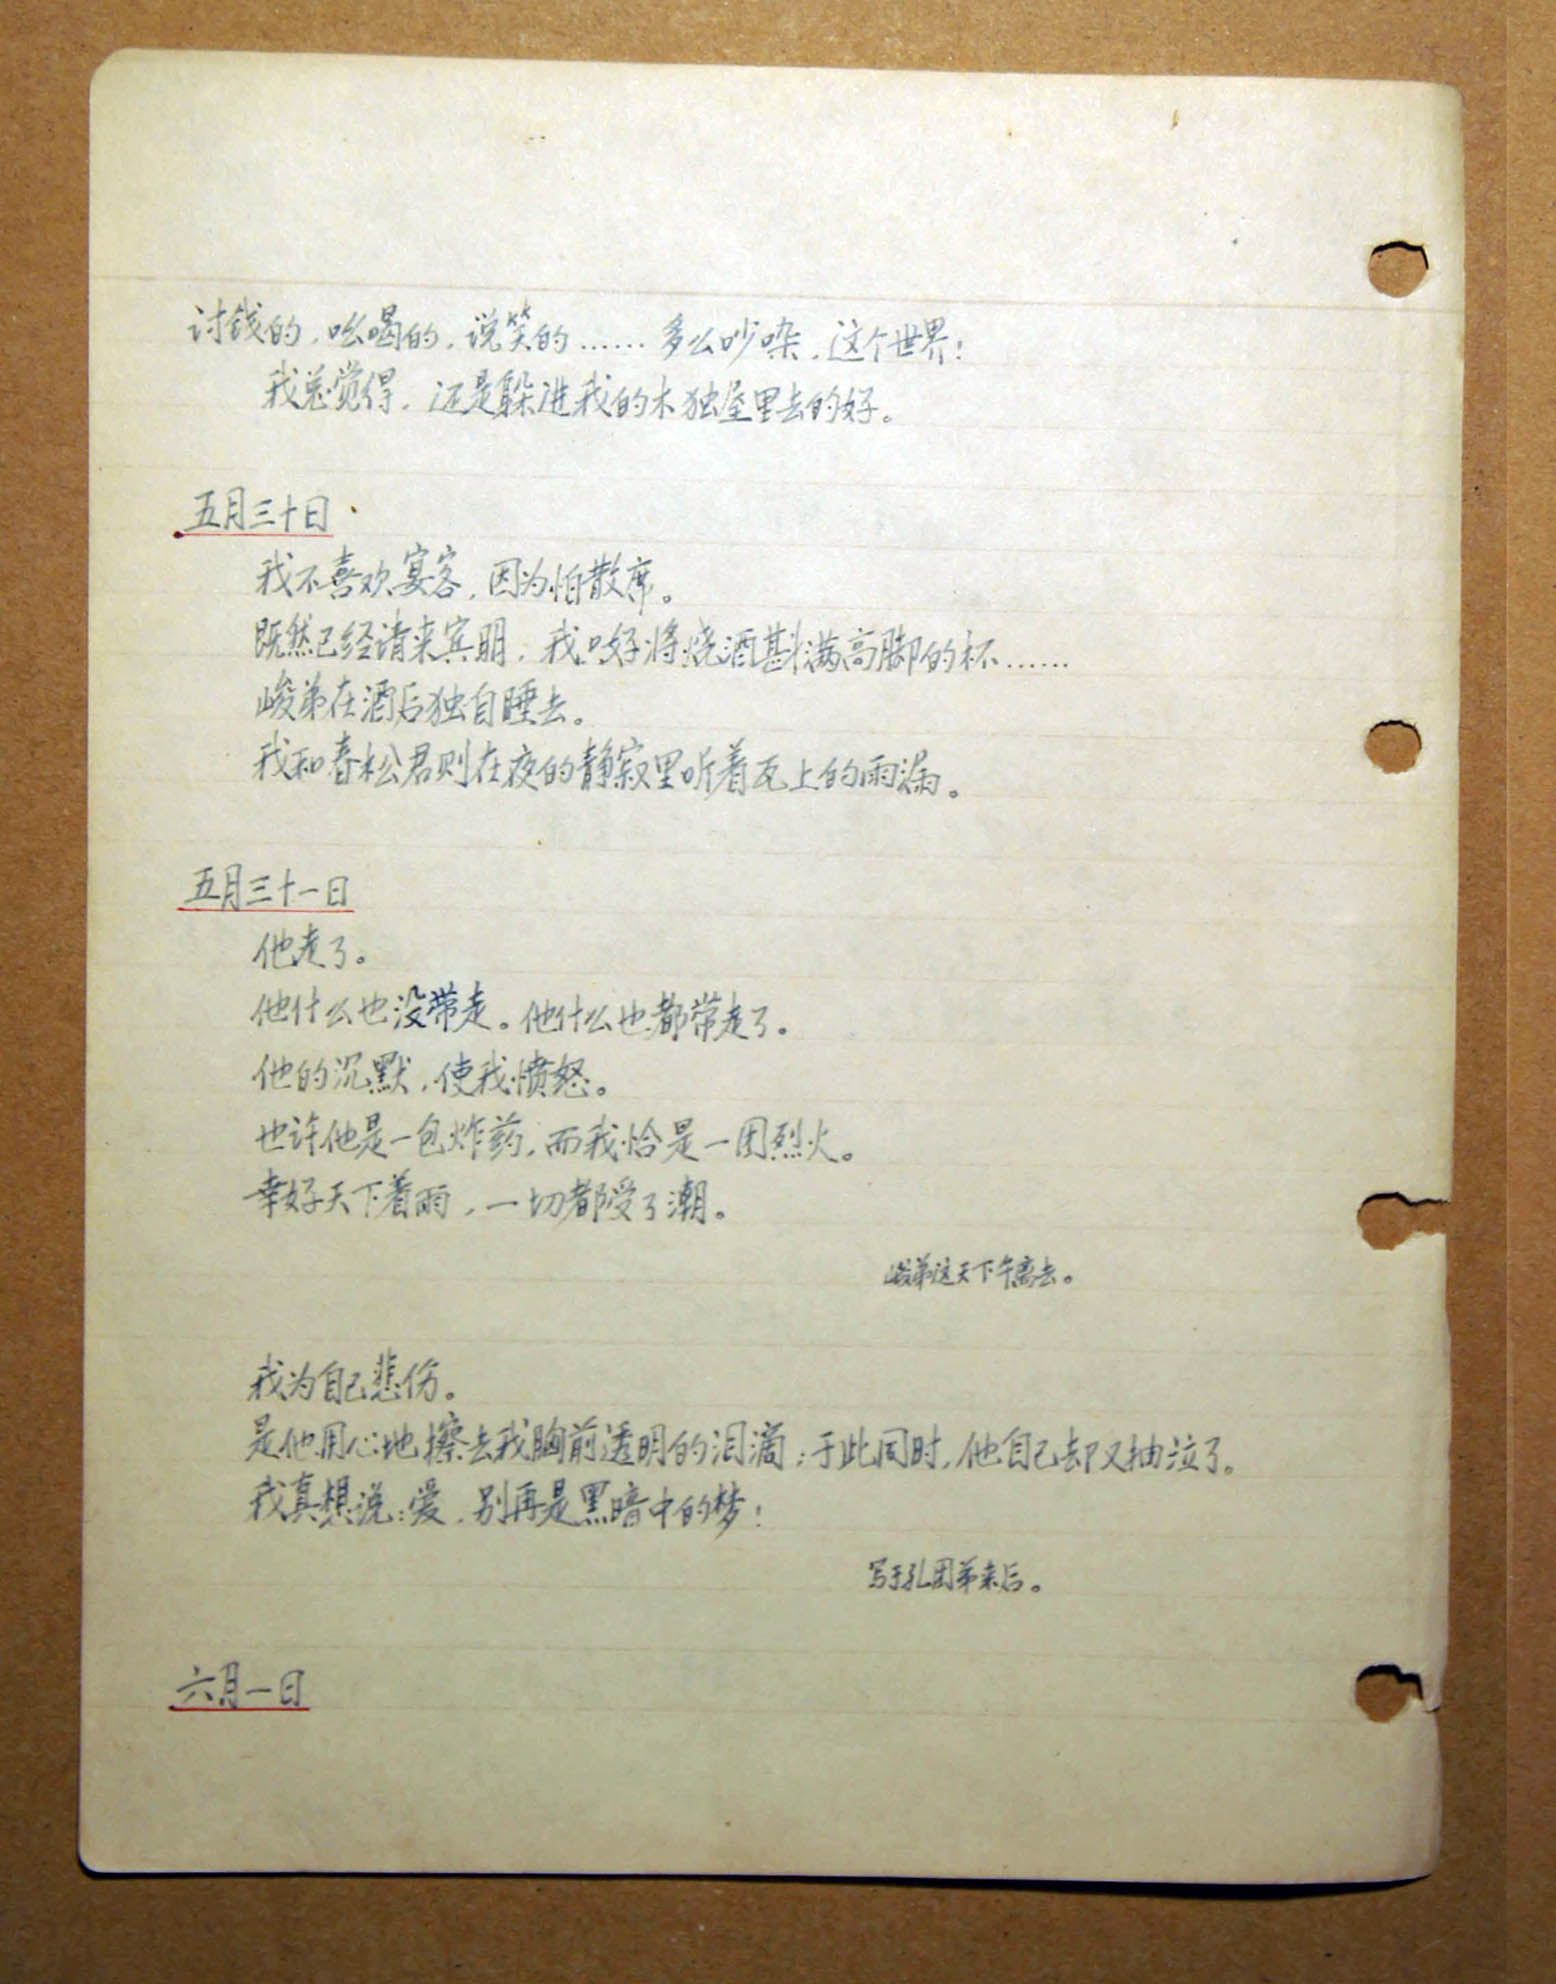 讨钱的，吆喝的，说笑的……多么吵杂，这个世界！
我总觉得，还是躲进我的木独屋里去的好。
五月三十日
我不喜欢宴客，因为怕散席。
既然已经请来宾朋，我只好将烧酒斟满高脚的杯……
峻弟在酒后独自睡去。
我和春松君则在夜的静寂里听着瓦上的雨漏。
五月三十一日
他走了。
他什么也没带走。他什么也都带走了。
他的沉默，使我愤怒。
也许他是一包炸药，而我恰是一团烈火。
幸好天下着雨，一切都受了潮。
峻弟这天下午离去。
我为自己悲伤。
是他用心地擦去我胸前透明的泪滴；于此同时，他自己却又抽泣了。
我真想说：爱，别再是黑暗中的梦！
写于孔团弟来后。
六月一日